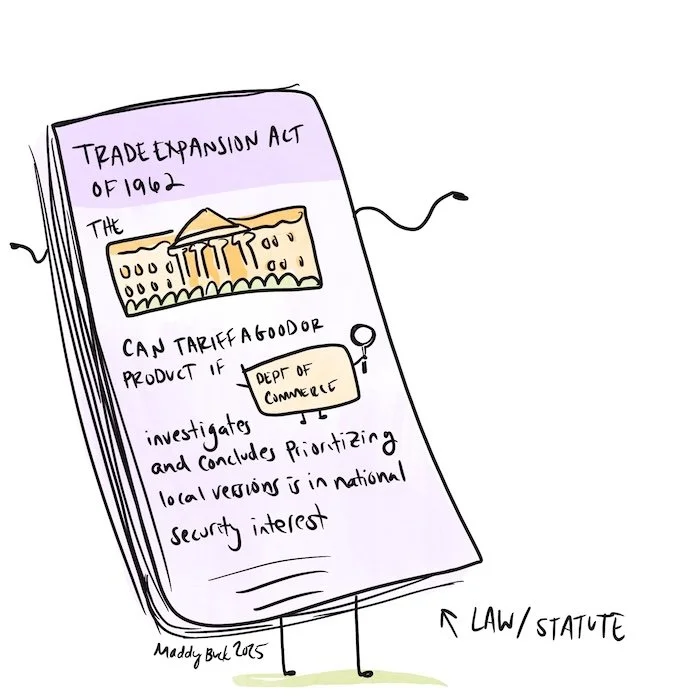 TRADE EXPANSION ACT
OF 1962
THE
CAN TARIFF A GOOD OR
PRODUCT IF
DEPT OF
COMMERCE
investigates
and concludes prioritizing
local versions is in national
security interest
Maddy Buck 2025
LAW/STATUTE